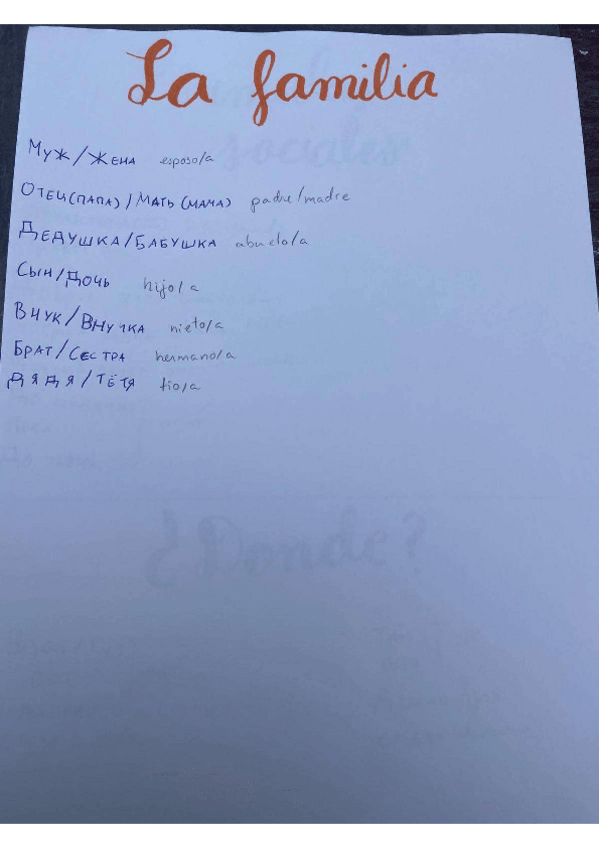 La familia
Муж/Жена esposo/a
Отец(папа)/Мать(мама) padre/madre
Дедушка/Бабушка abuelo/a
Сын/Дочь hijo/a
Внук/Внучка nieto/a
Брат/Сестра hermano/a
Дядя/Тётя tio/a
¿Donde?